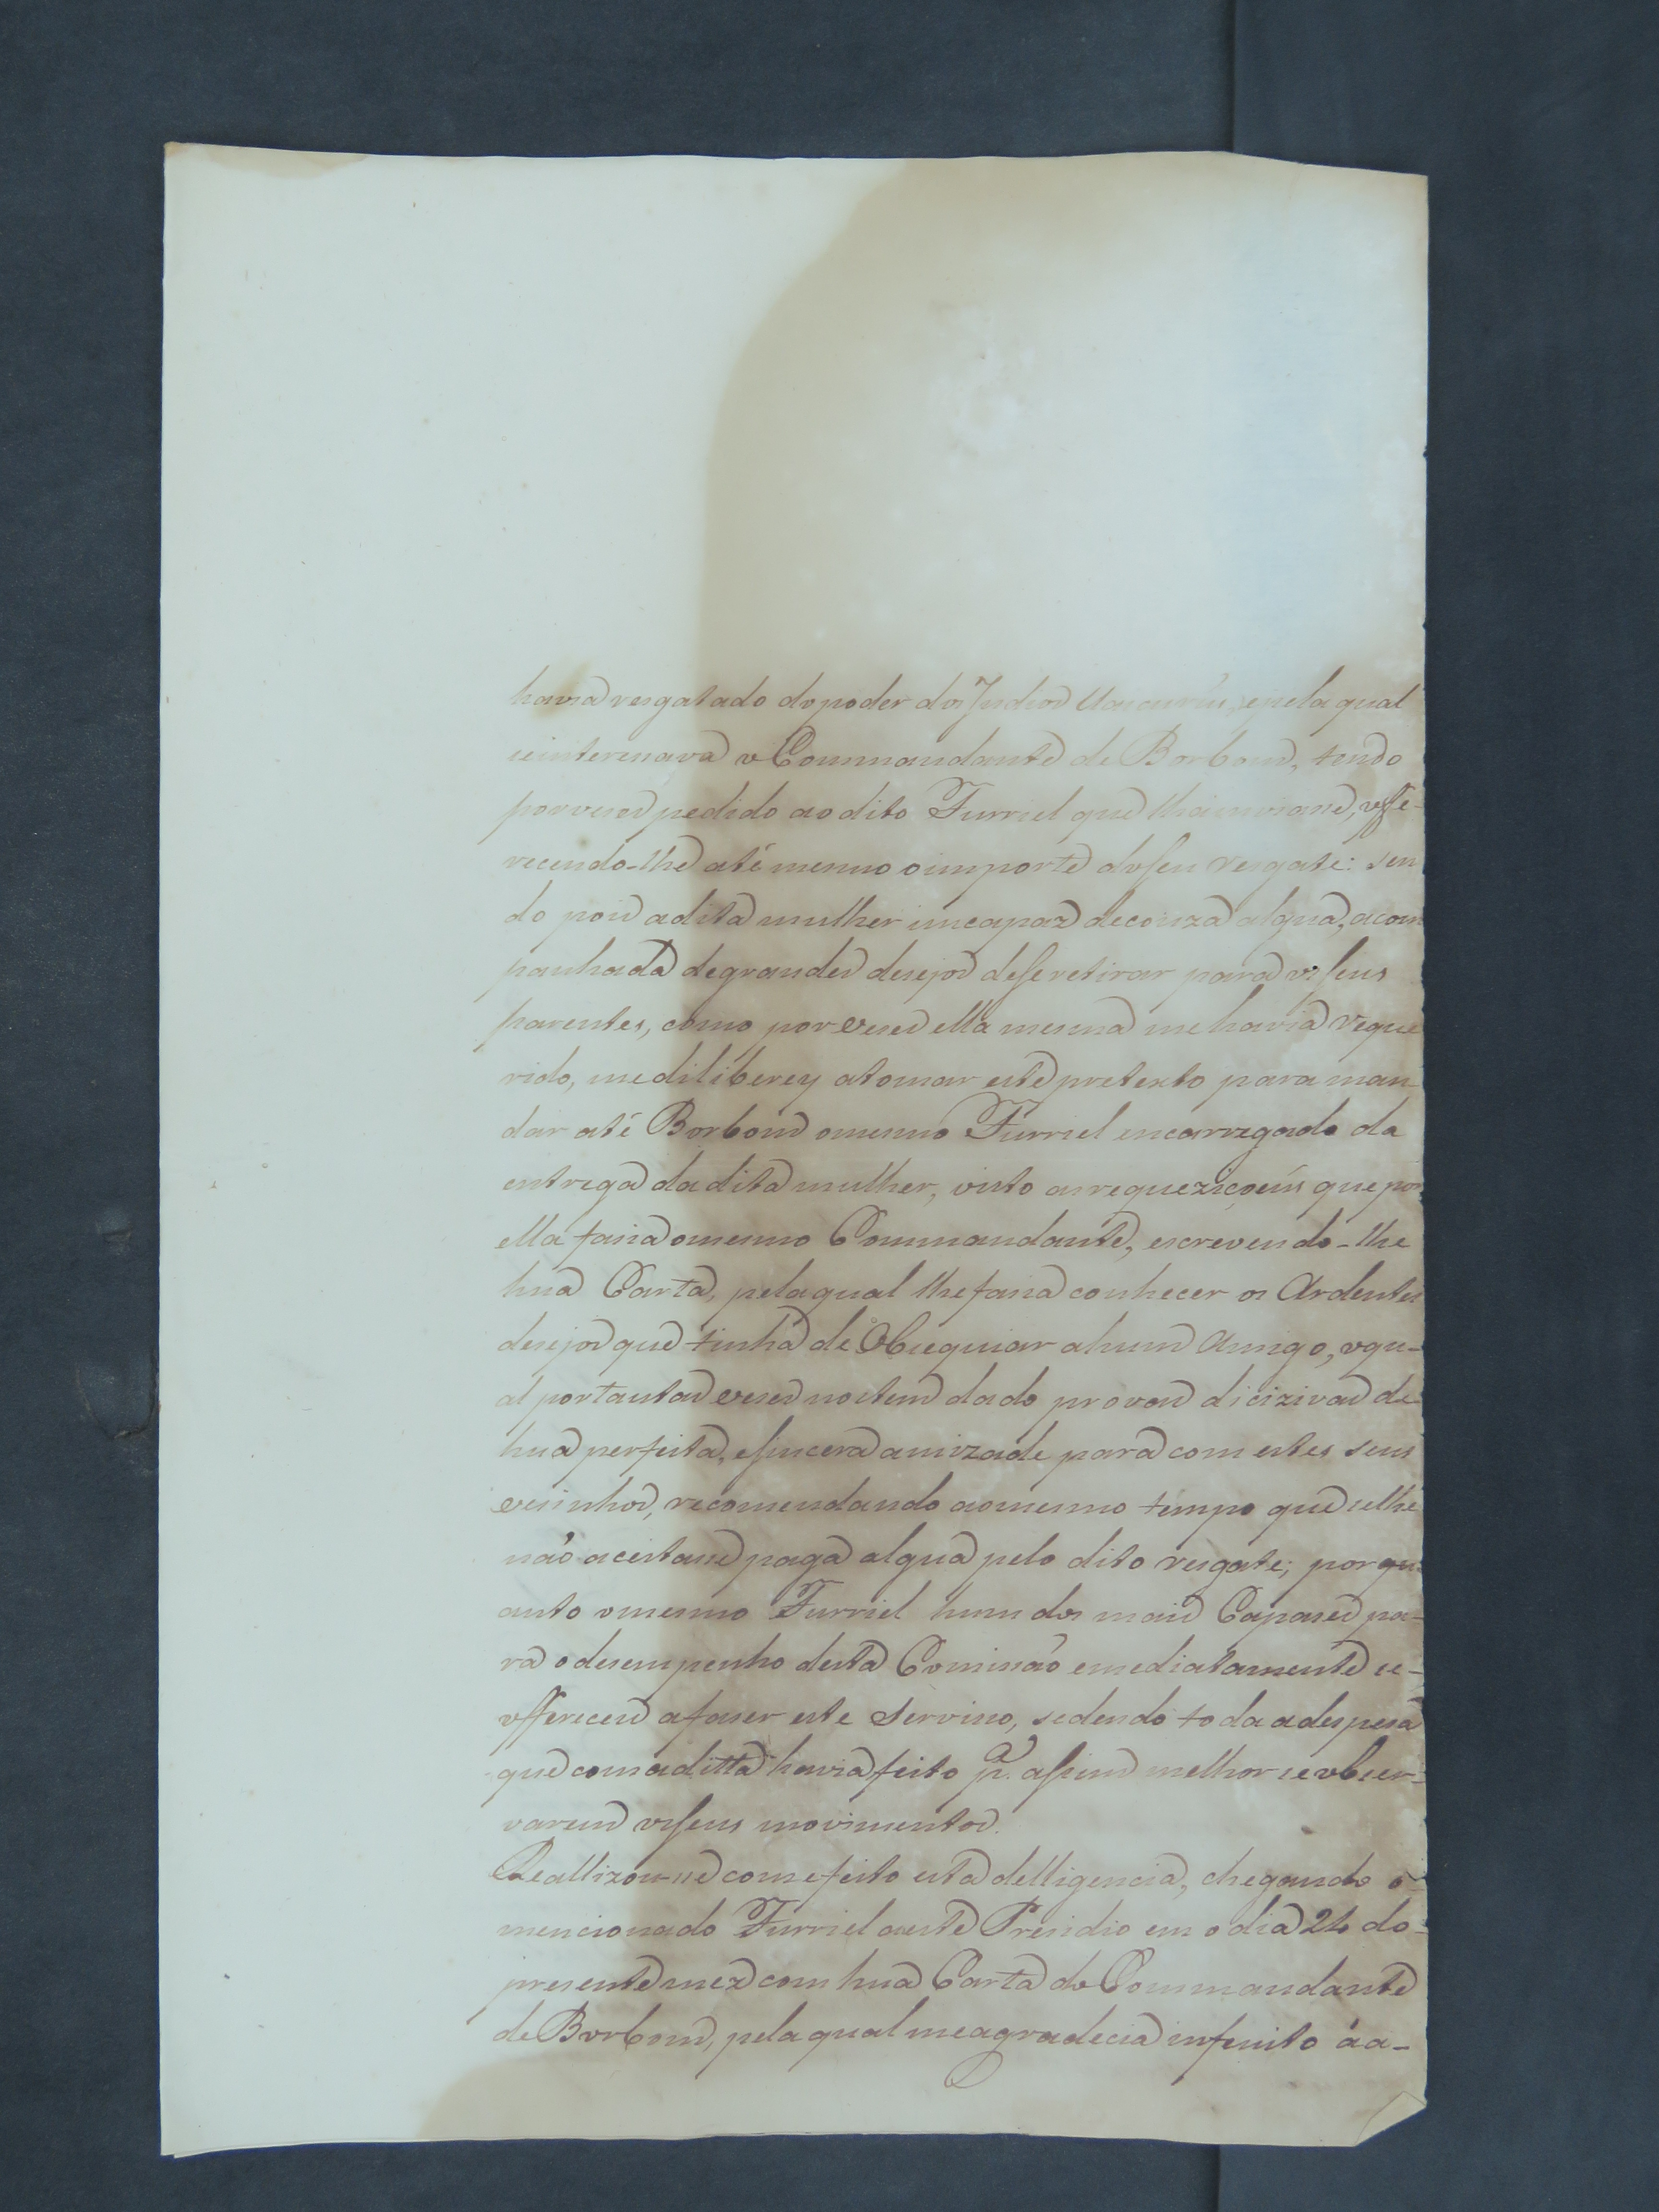 havia resgatado dopoder dos Indios Uaicurús, epela qual
seinteressava o Commandante de Borbom, tendo
porvezes pedido aodito Furriel que lha inviasse, offe-
recendo-lhe até mesmo oimporte doseu resgate: sen
do pois adita mulher imcapaz decouza algũa, acom
panhada degrandes desejos deseretirar para os seus
parentes, como por vezes ella mesma mehavia reque
rido, mediliberey atomar este pretexto para man
dar até Borbom omesmo Furriel encarregado da
entrega dadita mulher, visto asrequeziçoens que por
ella fasia omesmo Commandante, escrevendo-lhe
hũa Carta, pelaqual lhefasia conhecer os Ardentes
desejos que tinha de Obsequiar ahum Amigo, oqu-
al portantas vezes nostem dado provas dicizivas de
hũa perfeita, esincera amizade para com estes seus
vesinhos, recomendando aomesmo tempo que selhe
não aceitasse paga algũa pelo dito resgate; porqu
anto omesmo Furriel hum dos mais Capases pa-
ra odesempenho desta Comissão emediatamente se-
offereceu afaser este serviso, sedendo toda adespesa
que comaditta havia feito p.ª assim melhor seobser-
varem osseus movimentos.
Reallizou-se comefeito esta delligencia, chegando o
mencionado Furriel aeste Presidio em o dia 26 do
presente mez com hũa Carta do Commandante
de Borbom, pelaqual meagradecia infinito áa-